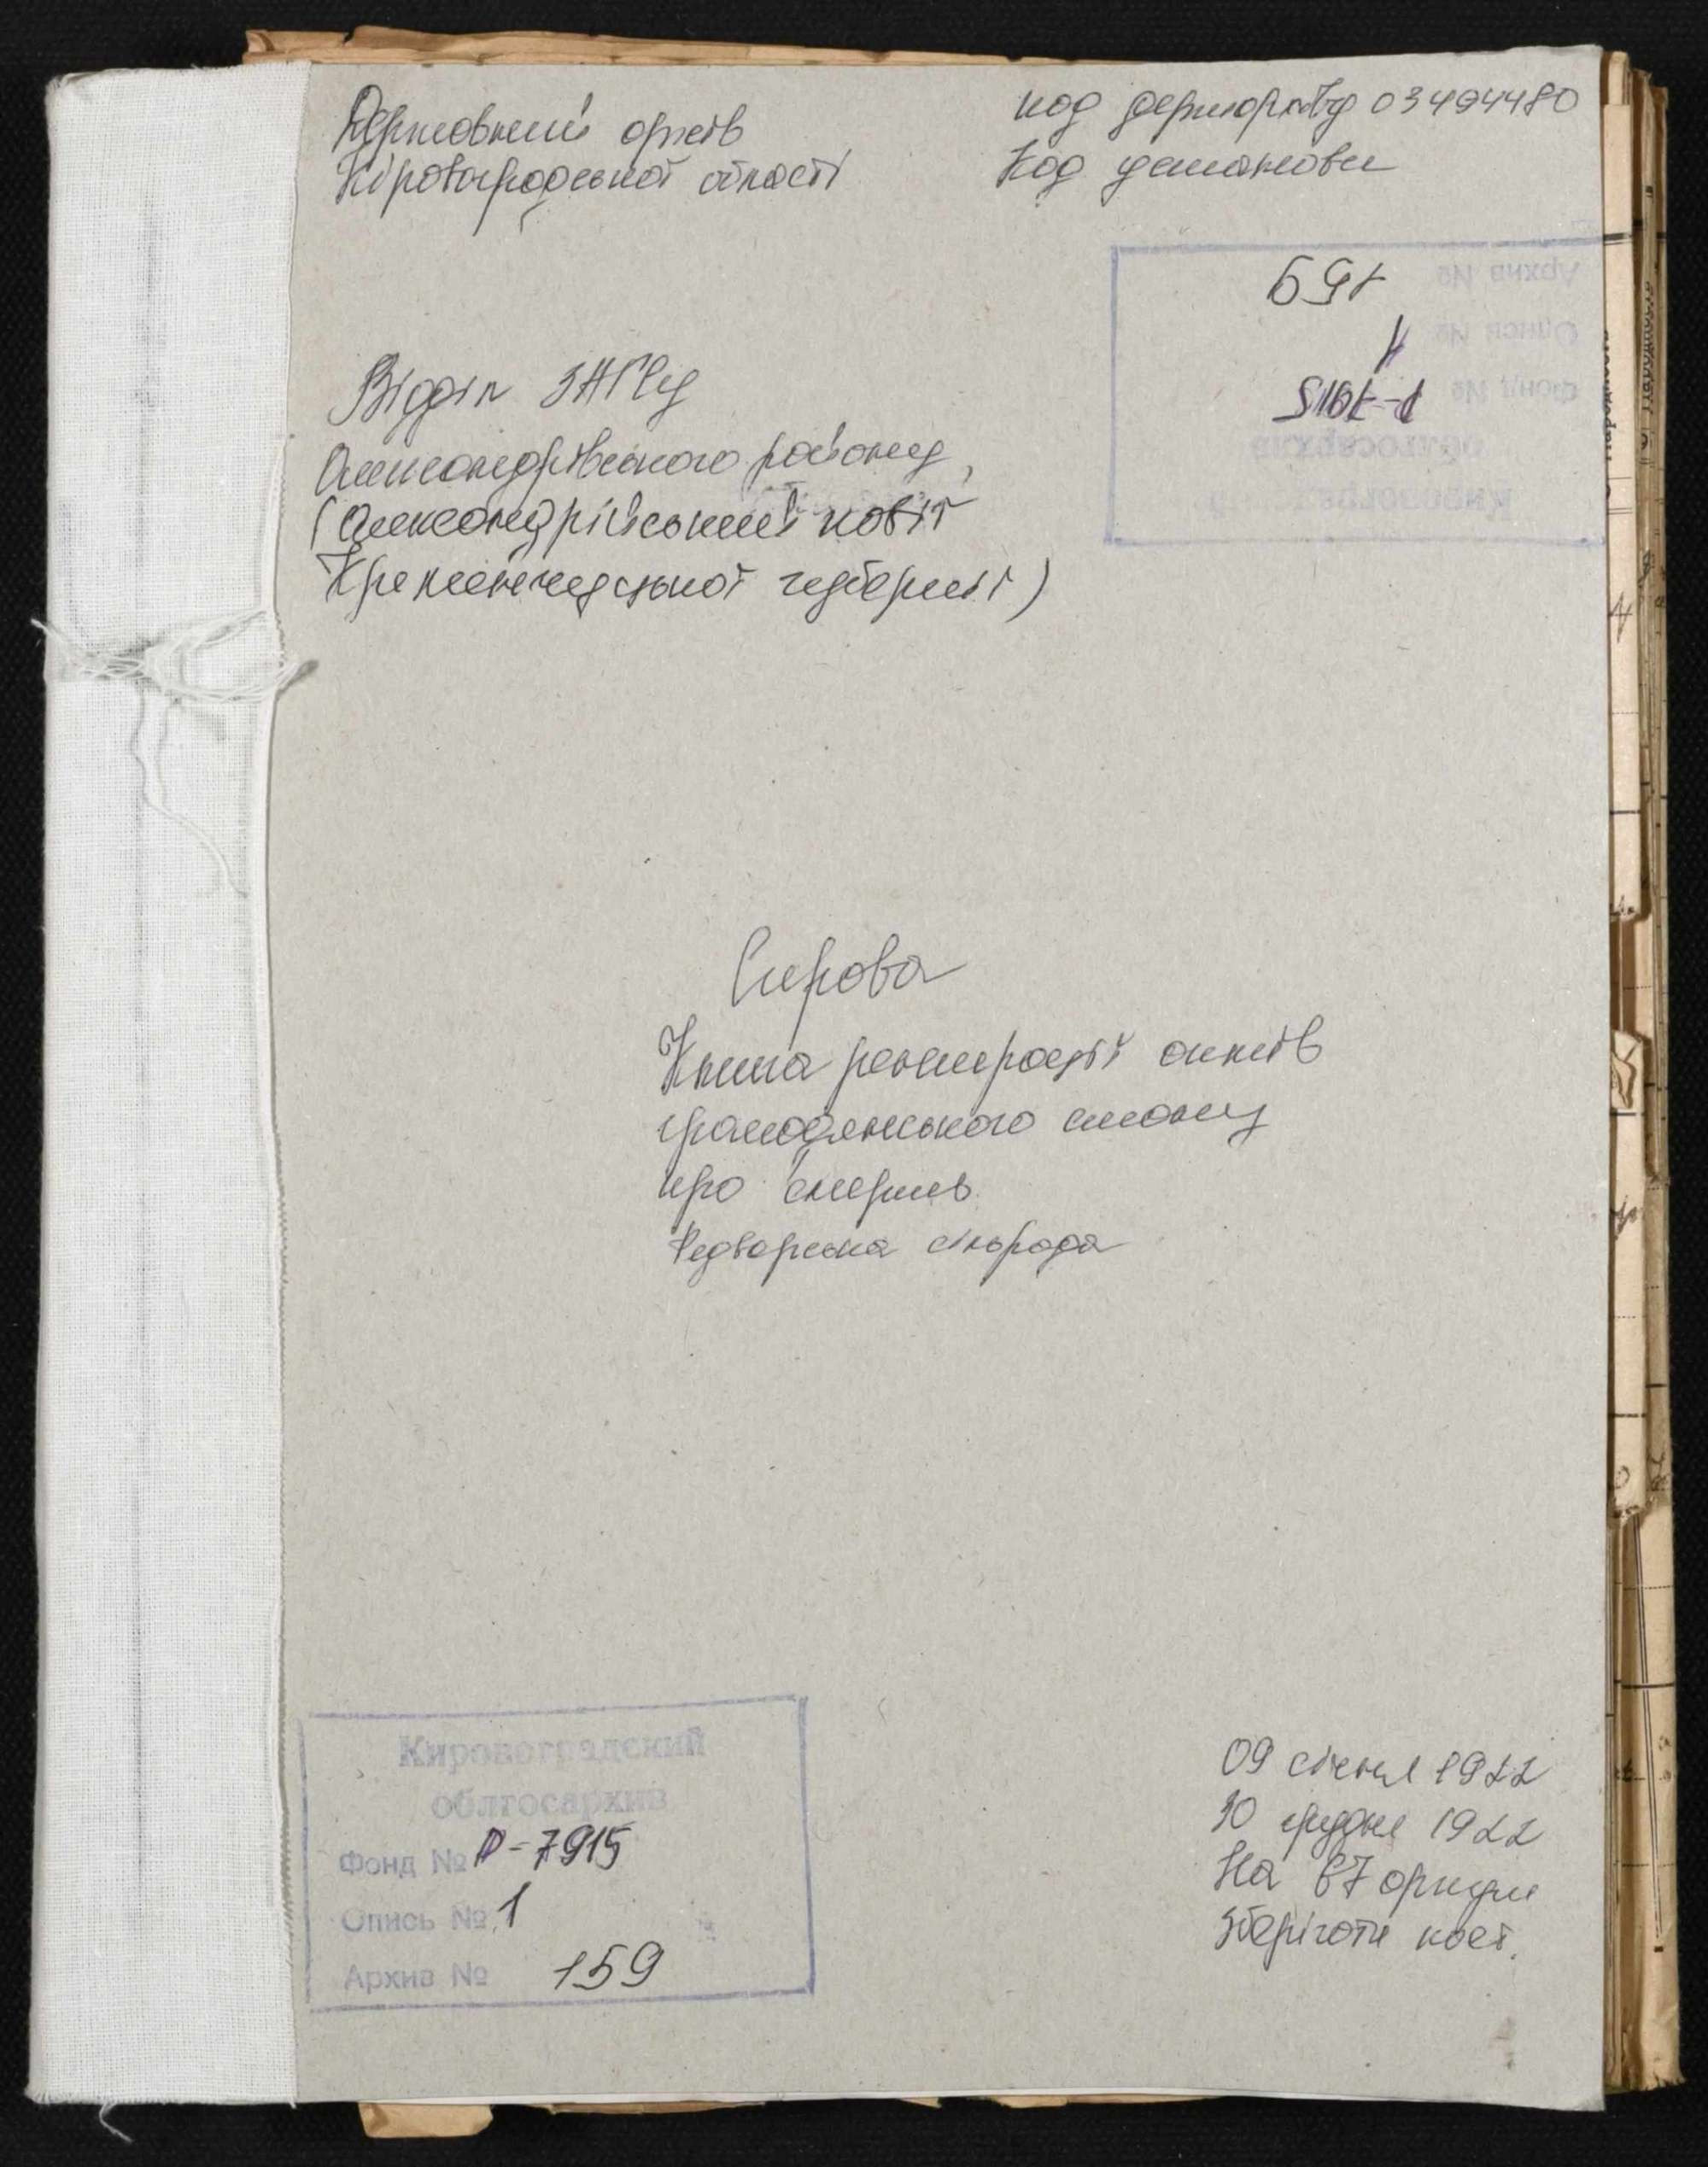 Державний архів
Кіровоградської області
Код держархіву 03494480
Код установи
159
1
Р-7915
Архив №
Опись №
Фонд №
облгосархив
Відділ ЗАГСу
Олександрівського району
(Олександрійський повіт
Кременчуцької губернії)
Справа
Книга реєстрації актів
громадянського стану
про смерть
сільрада
Кировоградский
облгосархив
Фонд № Р-7915
Опись № 1
Архив № 159
09 січня 1922
30 грудня 1922
На 87 аркуш
Зберігати пост.